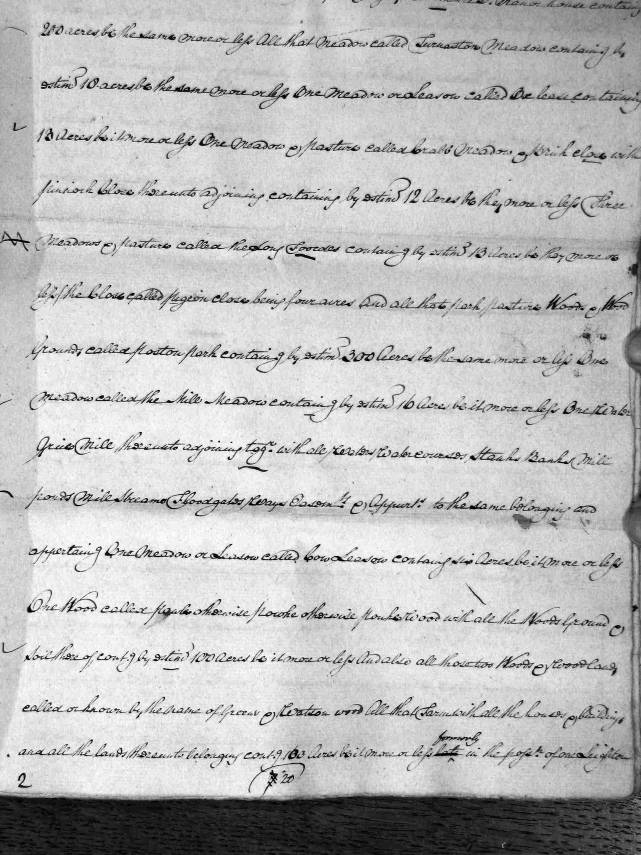 Manor house contain⁠g
200 acres be the same more or less All that Meadow called Turnaston Meadow containing by
estim⁠n 18 acres be the same more or less One Meadow or Leasow called Ox lease containing
13 Acres be it more or less One Meadow & pasture called Crabb Meadow & Brick close with
close thereunto adjoining containing by estim⁠n 12 Acres be they more or less Three
Meadows & pasture called the Long containg by estim⁠n 13 Acres be they more or
less the Close called pigeon close being four acres and all that park pasture Woods & Wood
Grounds called poston park containg by estim⁠n 300 Acres be the same more or less One
Meadow called the Mill Meadow containg by estim⁠n 16 Acres be it more or less One Water
Griss Mill thereunto adjoining togr. with all Waters Watercourses, Stanks Banks Mill
ponds Mill Streams Floodgates Ways Easemts & Appurts to the same belonging and
appertaing One Meadow or Leasow called Cow Leasow containg six Acres be it more or less
One Wood called otherwise powke otherwise Wood with all the Woods Ground &
soil thereof contg by estim⁠n 100 Acres be it more or less And also all those two Woods & Woodlands
called or known by the name of Green & Wood All that Farm with all the houses & buildings
formerly
and all the lands thereunto belonging contg 103 Acres be it more or less late in the posson of one Leighton
2 20